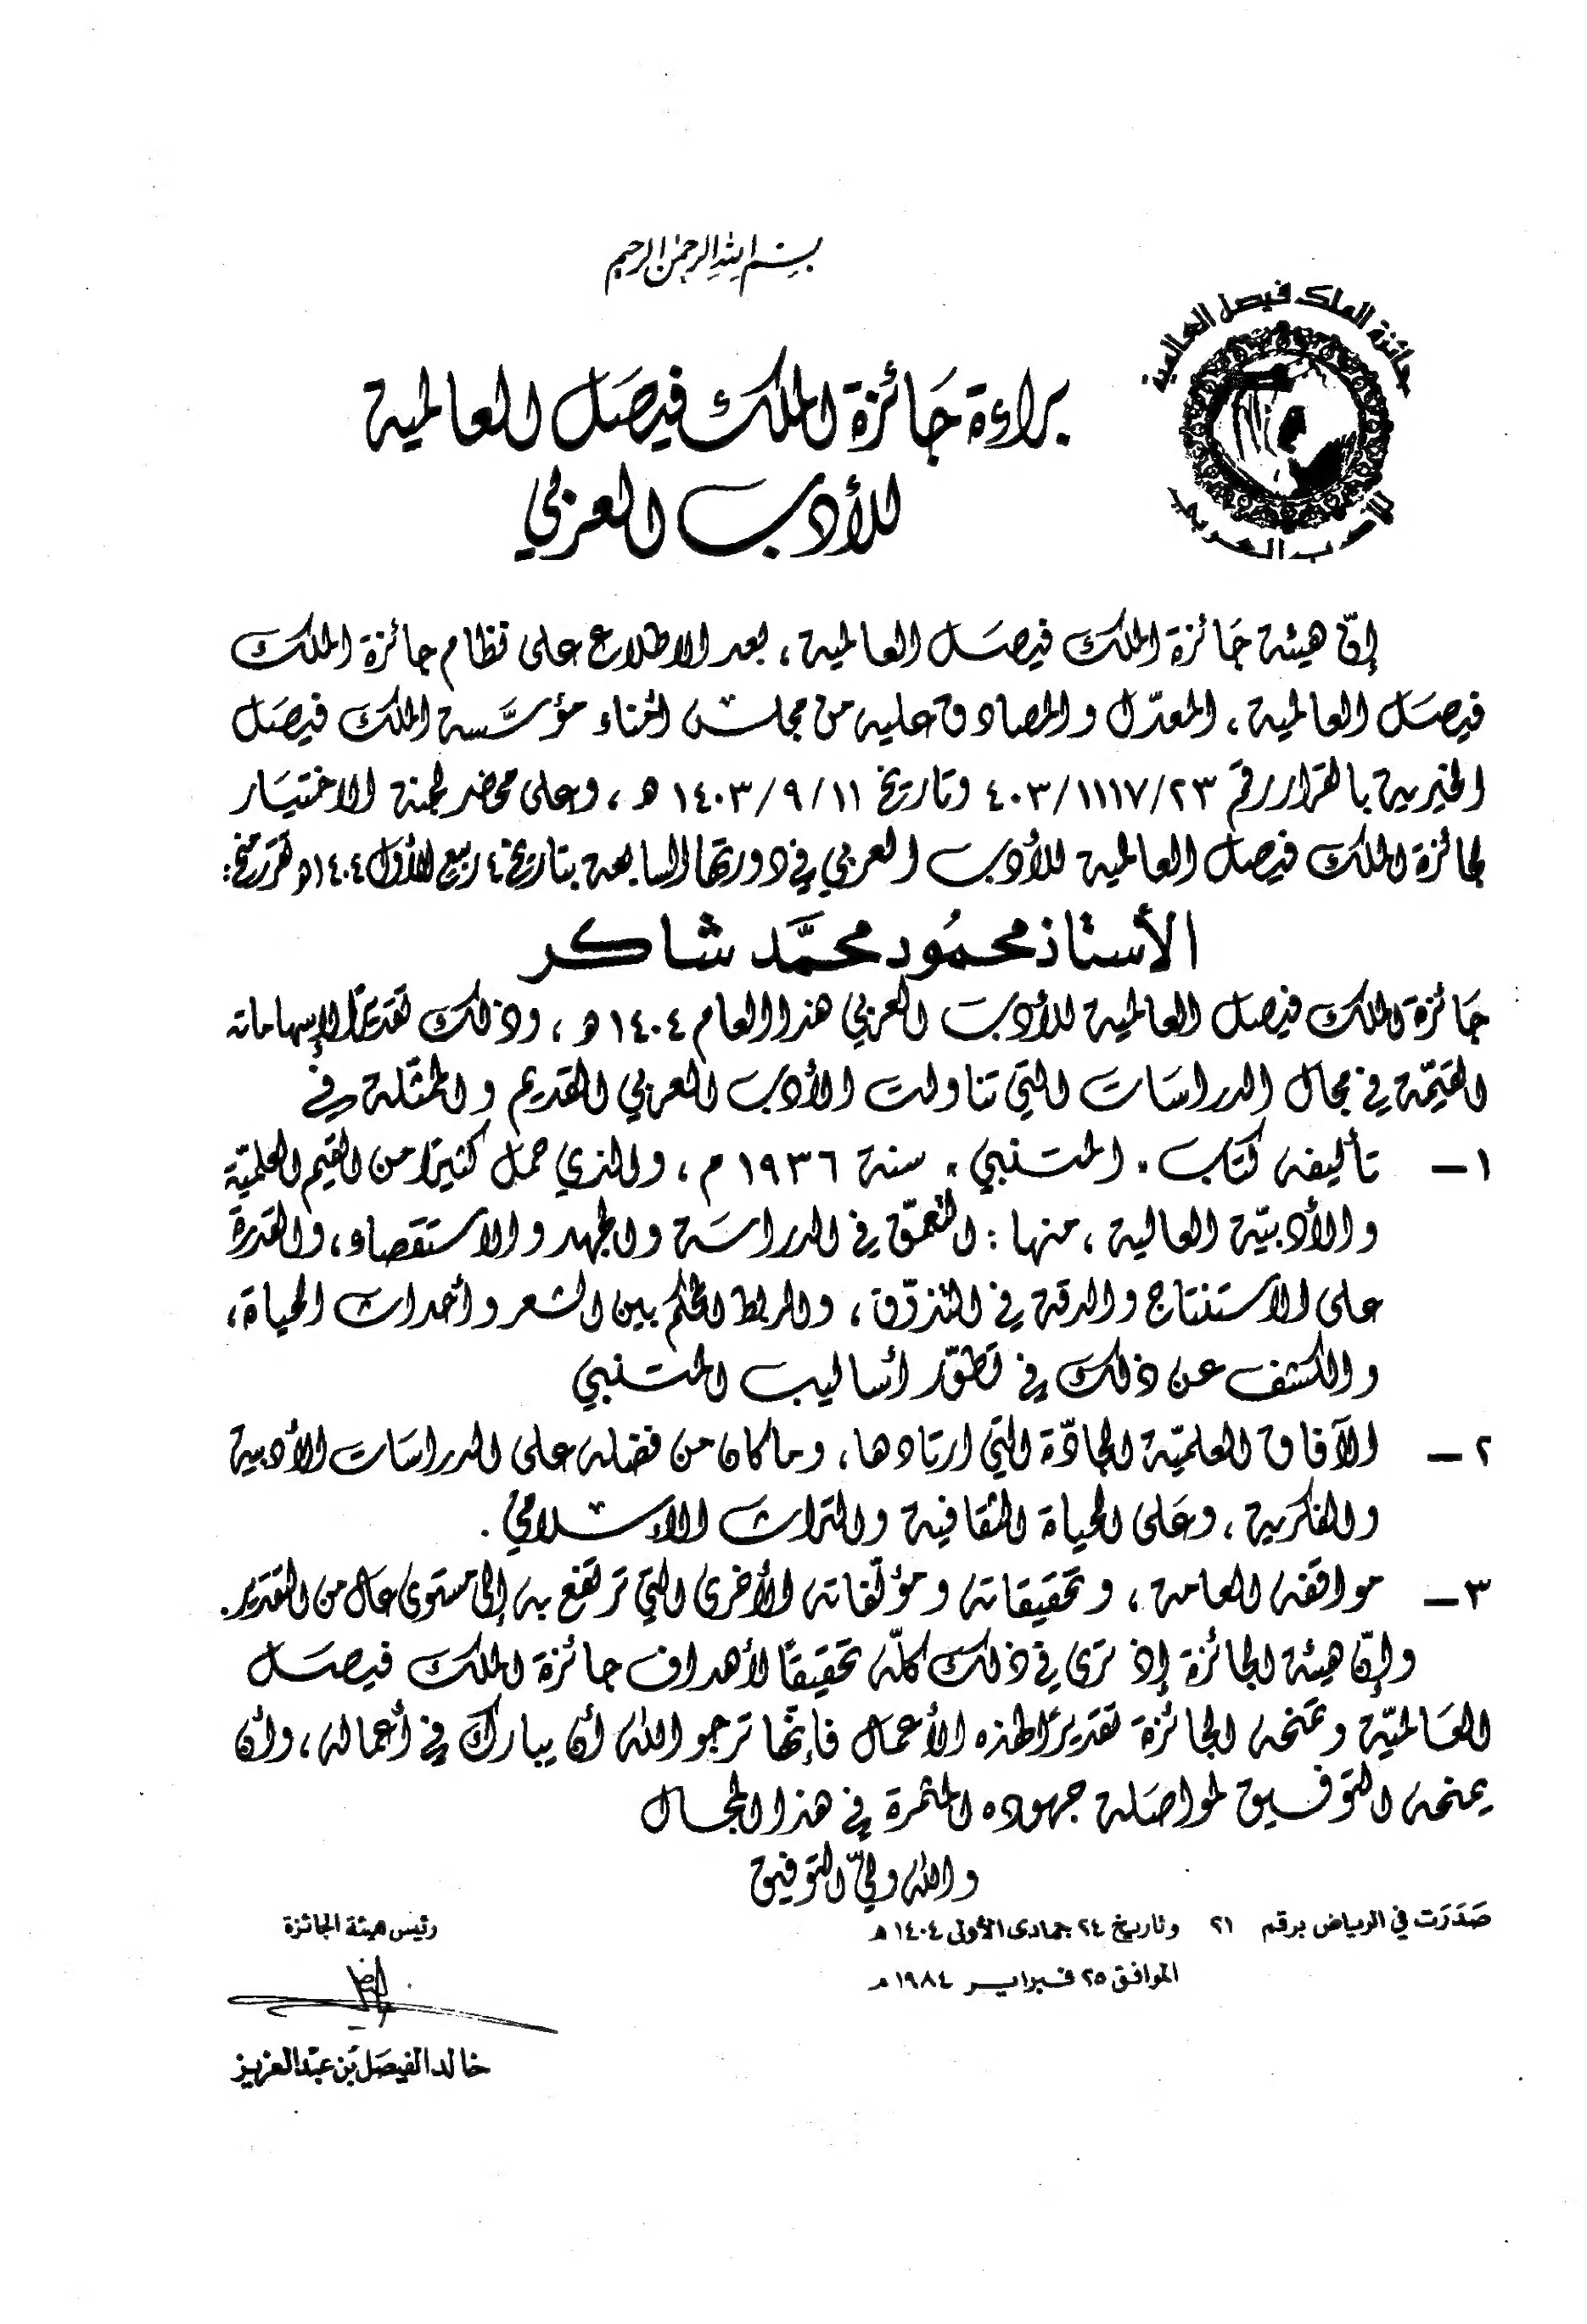 بسم الله الرحمن الرحيم
جائزة الملك فيصل العالمية
للأدب العربي
براءة جَائزة الملك فيصَل العالمية
للأدب العربي
إنّ هيئة جَائزة الملك فيصَل العالمية ، بعد الاطلاع على نظام جائزة الملك
فيصَل العالمية ، المعدّل والمصادق عليه من مجلس أمناء مؤسَّسة الملك فيصَل
الخيرية بالقرار رقم ٤٠٣/١١١٧/٢٣ وتاريخ ١٤٠٣/٩/١١ هـ ، وعلى محضر لجنة الاختيَار
لجائزة الملك فيصل العالمية للأدب العربي في دورتها السابعة بتاريخ ٤ ربيع الأول ١٤٠٤هـ تقرر منح :
الأستاذ محمُود محمَّد شاكر
جَائزة الملك فيصل العالمية للأدب العربي هذا العام ١٤٠٤ هـ ، وذلك تقديرًا لإسهاماته
القيّمة في مجال الدراسَات التي تناولت الأدب العربي القديم والممثّلة في
١ – تأليفه كتاب " المتنبي " سنة ١٩٣٦ م ، والذي حمل كثيرًا من القيم العلميّة
والأدبيّة العالية ، منها : التعمّق في الدراسَة والجهد والاستقصاء ، والقدرة
على الاستنتاج والدقة في التذوّق ، والربط المحكم بين الشعر وأحداث الحياة ،
والكشف عن ذلك في تطوّر أساليب المتنبي
٢ – الآفاق العلميّة الجادّة التي ارتادها ، وما كان من فضله على الدراسَات الأدبية
والفكرية ، وعَلى الحياة الثقافية والتراث الإسلامي .
٣ – مواقفه العامة ، وتحقيقاته ومؤلّفاته الأخرى التي ترتفع به إلى مستوى عال من التقدير .
وإنّ هيئة الجائزة إذ ترى في ذلك كلّه تحقيقًا لأهداف جائزة الملك فيصَل
العَالميّة وتمنحه الجائزة تقديرًا لهذه الأعمال فإنّها ترجو الله أن يبارك في أعماله ، وأن
يمنحه التوفيق لمواصَلة جهوده المثمرة في هذا المجال
والله وليّ التوفيق
صَدَرَت في الرياض برقم ٢١ وتاريخ ٢٤ جمادى الأولى ١٤٠٤ هـ
الموافق ٢٥ فبراير ١٩٨٤ م
رئيس هيئة الجائزة
خالد الفيصَل بن عبدالعزيز